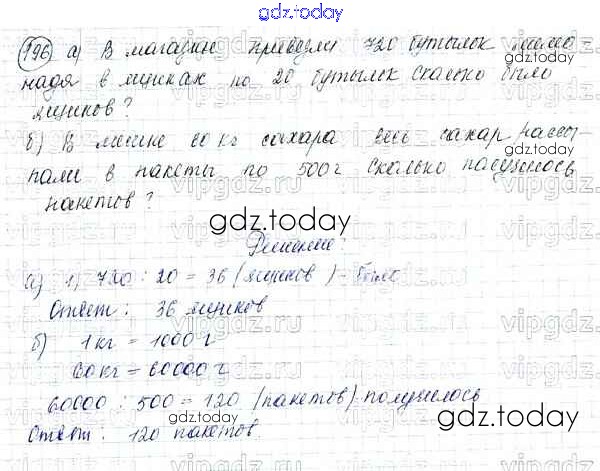 gdz.today
196 а) В магазин привезли 720 бутылок лимо
надя в ящиках по 20 бутылок сколько было
ящиков?
б) В мешке 60 кг сахара весь сахар рассы
пали в пакеты по 500 г сколько получилось
пакетов?
gdz.today
Решение:
а) 1) 720 : 20 = 36 (ящиков) - было
Ответ: 36 ящиков
б) 1 кг = 1000 г
60 кг = 60000 г
60000 : 500 = 120 (пакетов) получилось
Ответ: 120 пакетов.
gdz.today
gdz.today
vipgdz.ru